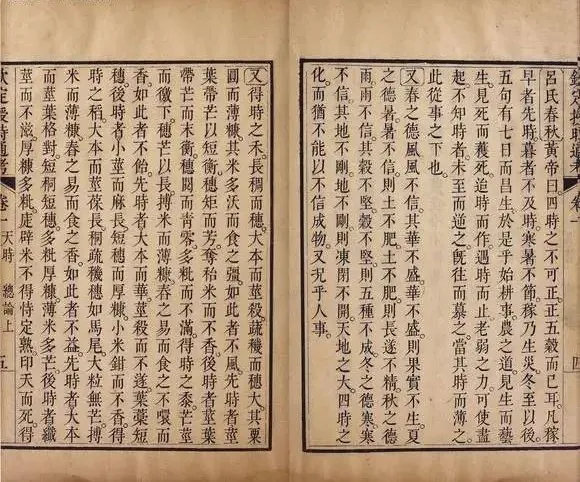 欽定授時通考 卷一 四
呂氏春秋黃帝曰四時之不可正正五穀而已耳。凡稼
早者先時暮者不及時寒暑不節稼乃生災。冬至以後
五旬有七日而昌生於是乎始耕事。農之道見生而藝
生見死而穫死。迨時而作遇時而止老弱之力可使盡
起不知時者未至而逆之旣往而慕之當其時而薄之
此從事之下也。
又春之德風風不信其華不盛華不盛則果實不生夏
之德暑暑不信則土不肥土不肥則長遂不精秋之德
雨雨不信其穀不堅穀不堅則五種不成冬之德寒寒
不信其地不剛地不剛則凍閉不開天地之大四時之
化而猶不能以不信成物又況乎人事。
又得時之禾長稠而穗大本而莖殺疏穖而穗大其粟
圓而薄糠其米多沃而食之彊。如此者不風。先時者莖
葉帶芒以短衡穗矩而芳奪秮米而不香。後時者莖葉
帶芒而末衡穗閱而青零。多粃而不滿。得時之黍芒莖
而徼下穗芒以長搏米而薄糠舂之易而食之不噮而
香。如此者不飴。先時者大本而華莖殺而不遂葉藁短
穗。後時者小莖而麻長短穗而厚糠小米鉗而不香得
時之稻。大本而莖葆長桐疏穖穗如馬尾大粒無芒摶
米而薄糠舂之易而食之香如此者不益。先時者大本
而莖葉格對短桐短穗。多粃厚糠薄米多芒後時者纖
莖而不滋厚糠多粃庢辟米不得恃定熟。卬天而死。得
欽定授時通考 卷一 天時 總論上 五